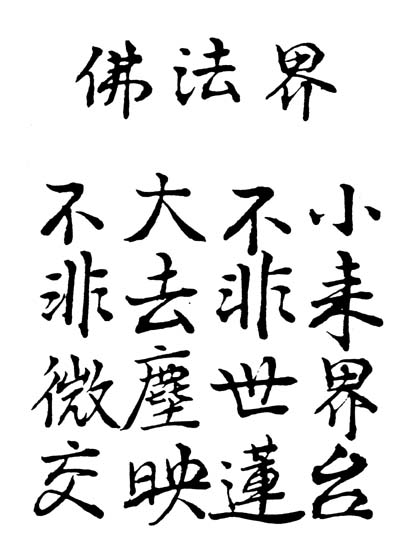 佛法界
不大不小
非去非来
微塵世界
交映蓮台